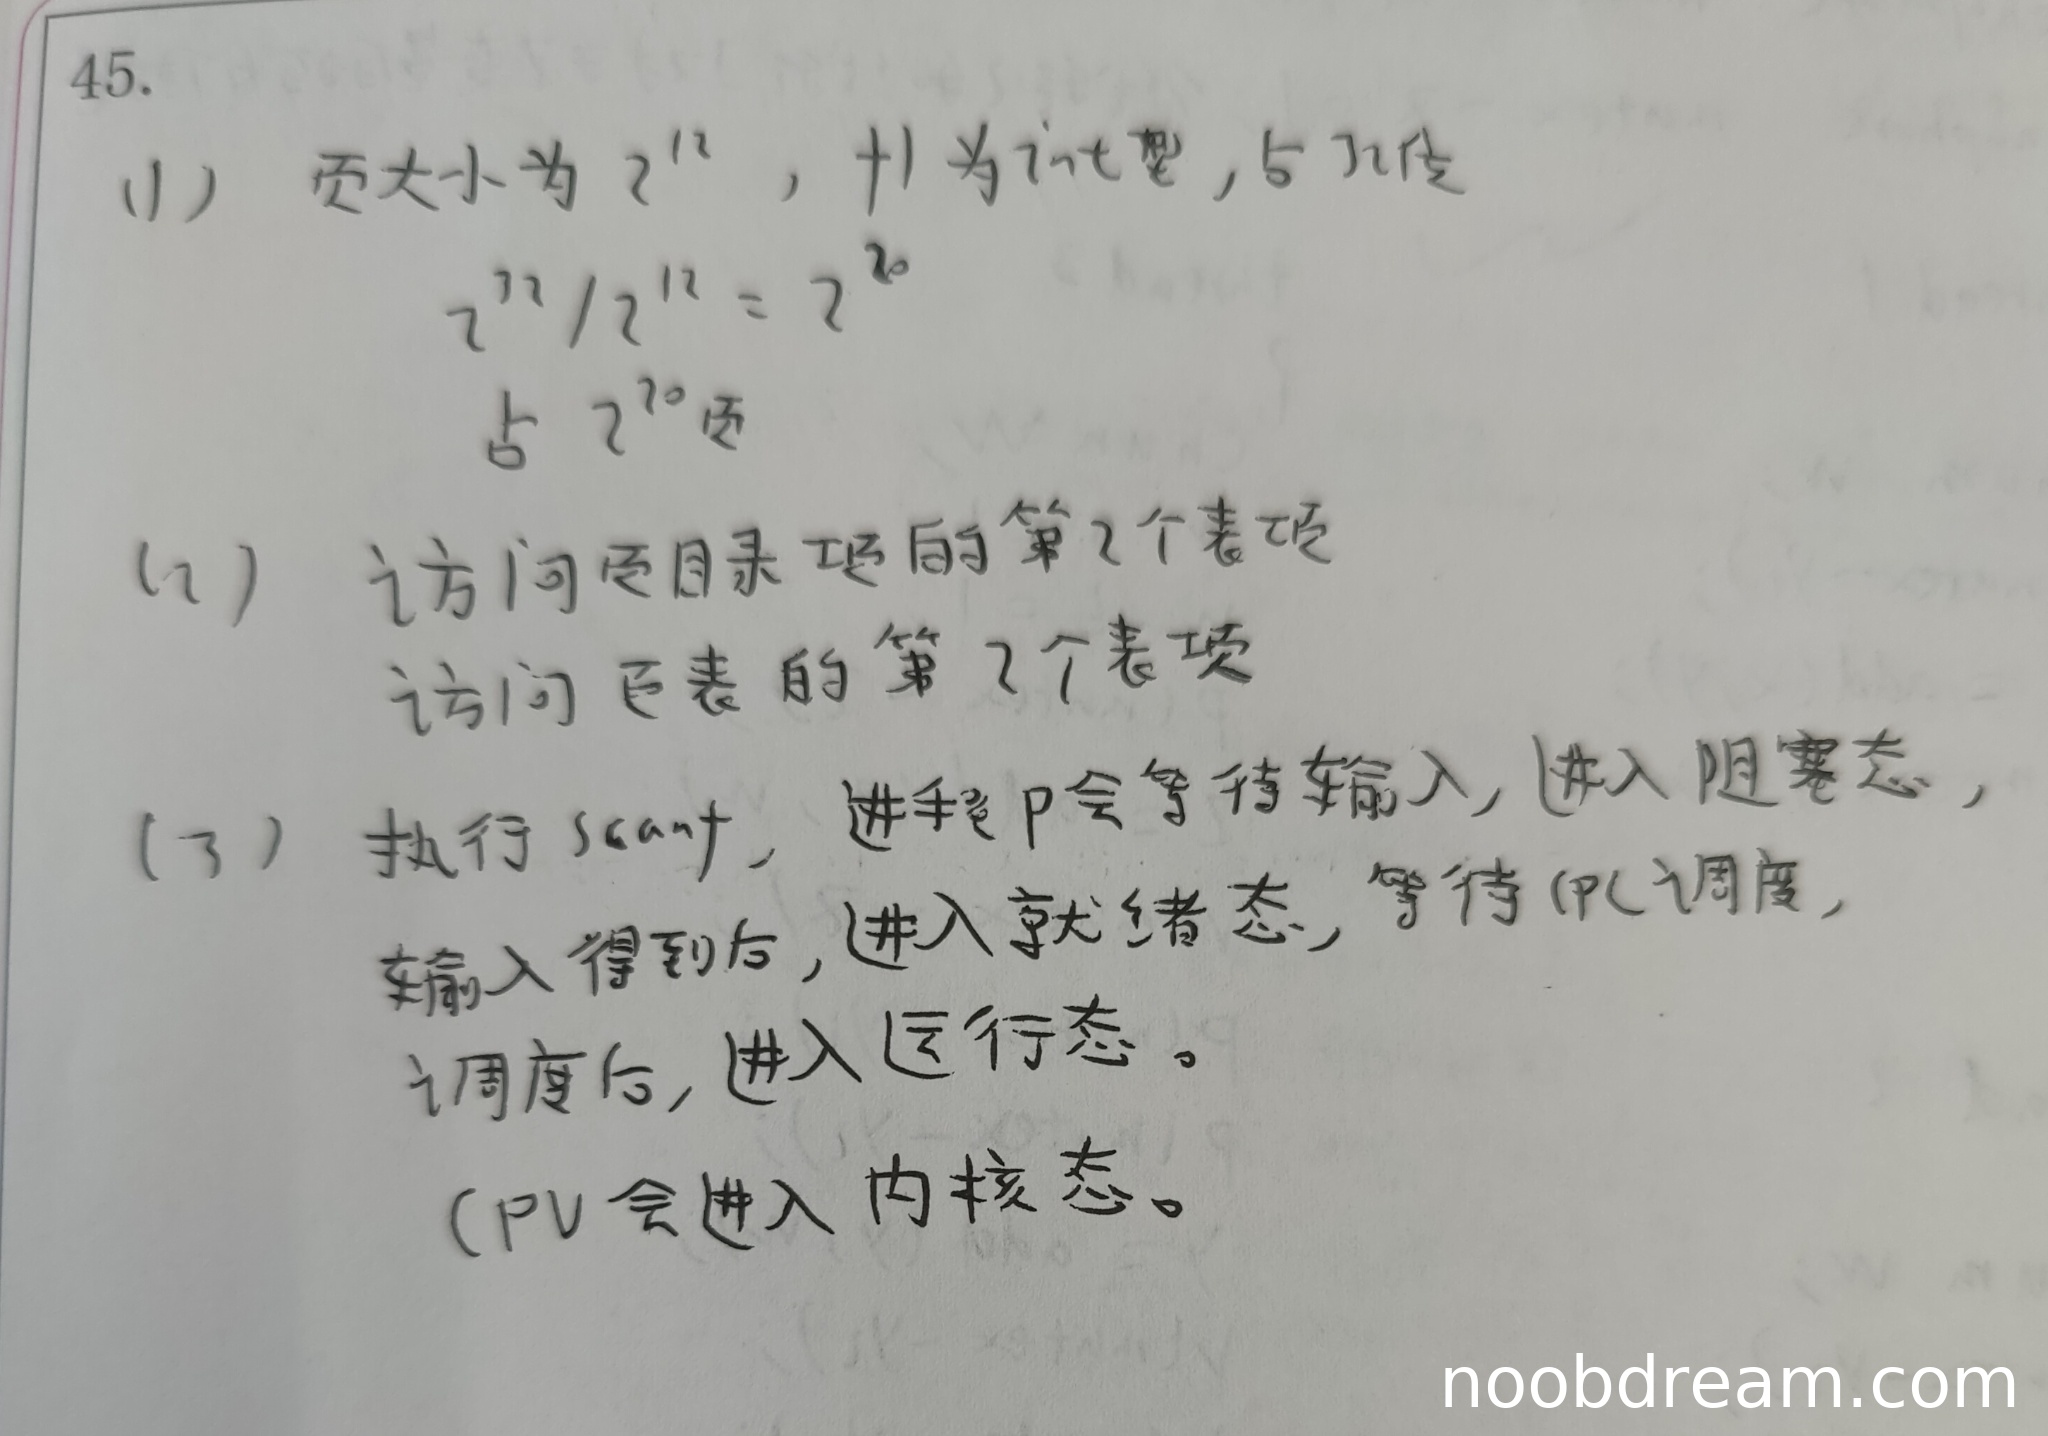 45.
(1) 页大小为 2^12 , f1 为int型,占32位
2^32 / 2^12 = 2^20
占 2^20 页
(2) 访问页目录项的第2个表项
访问页表的第2个表项
(3) 执行 scanf, 进程P会等待输入, 进入阻塞态,
输入得到后, 进入就绪态, 等待CPU调度,
调度后, 进入运行态。
CPU会进入内核态。
noobdream.com